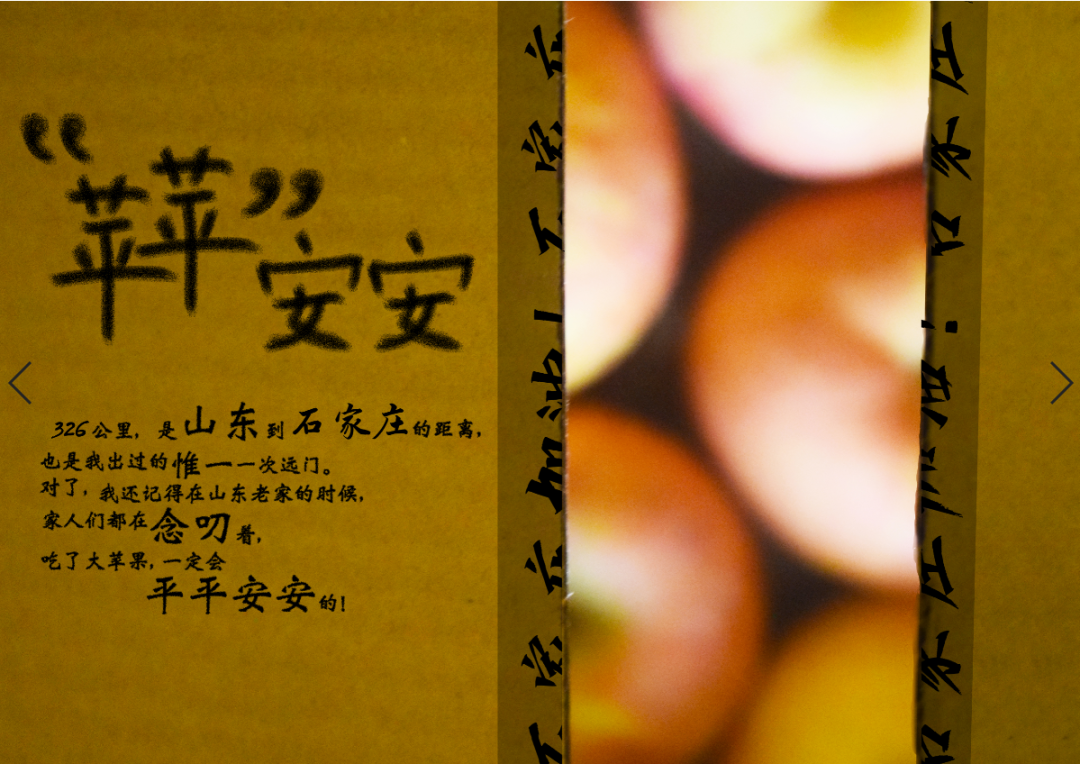 “苹苹”安安
326公里，是山东到石家庄的距离，
也是我出过的惟一一次远门。
对了，我还记得在山东老家的时候，
家人们都在念叨着，
吃了大苹果，一定会
平平安安的！